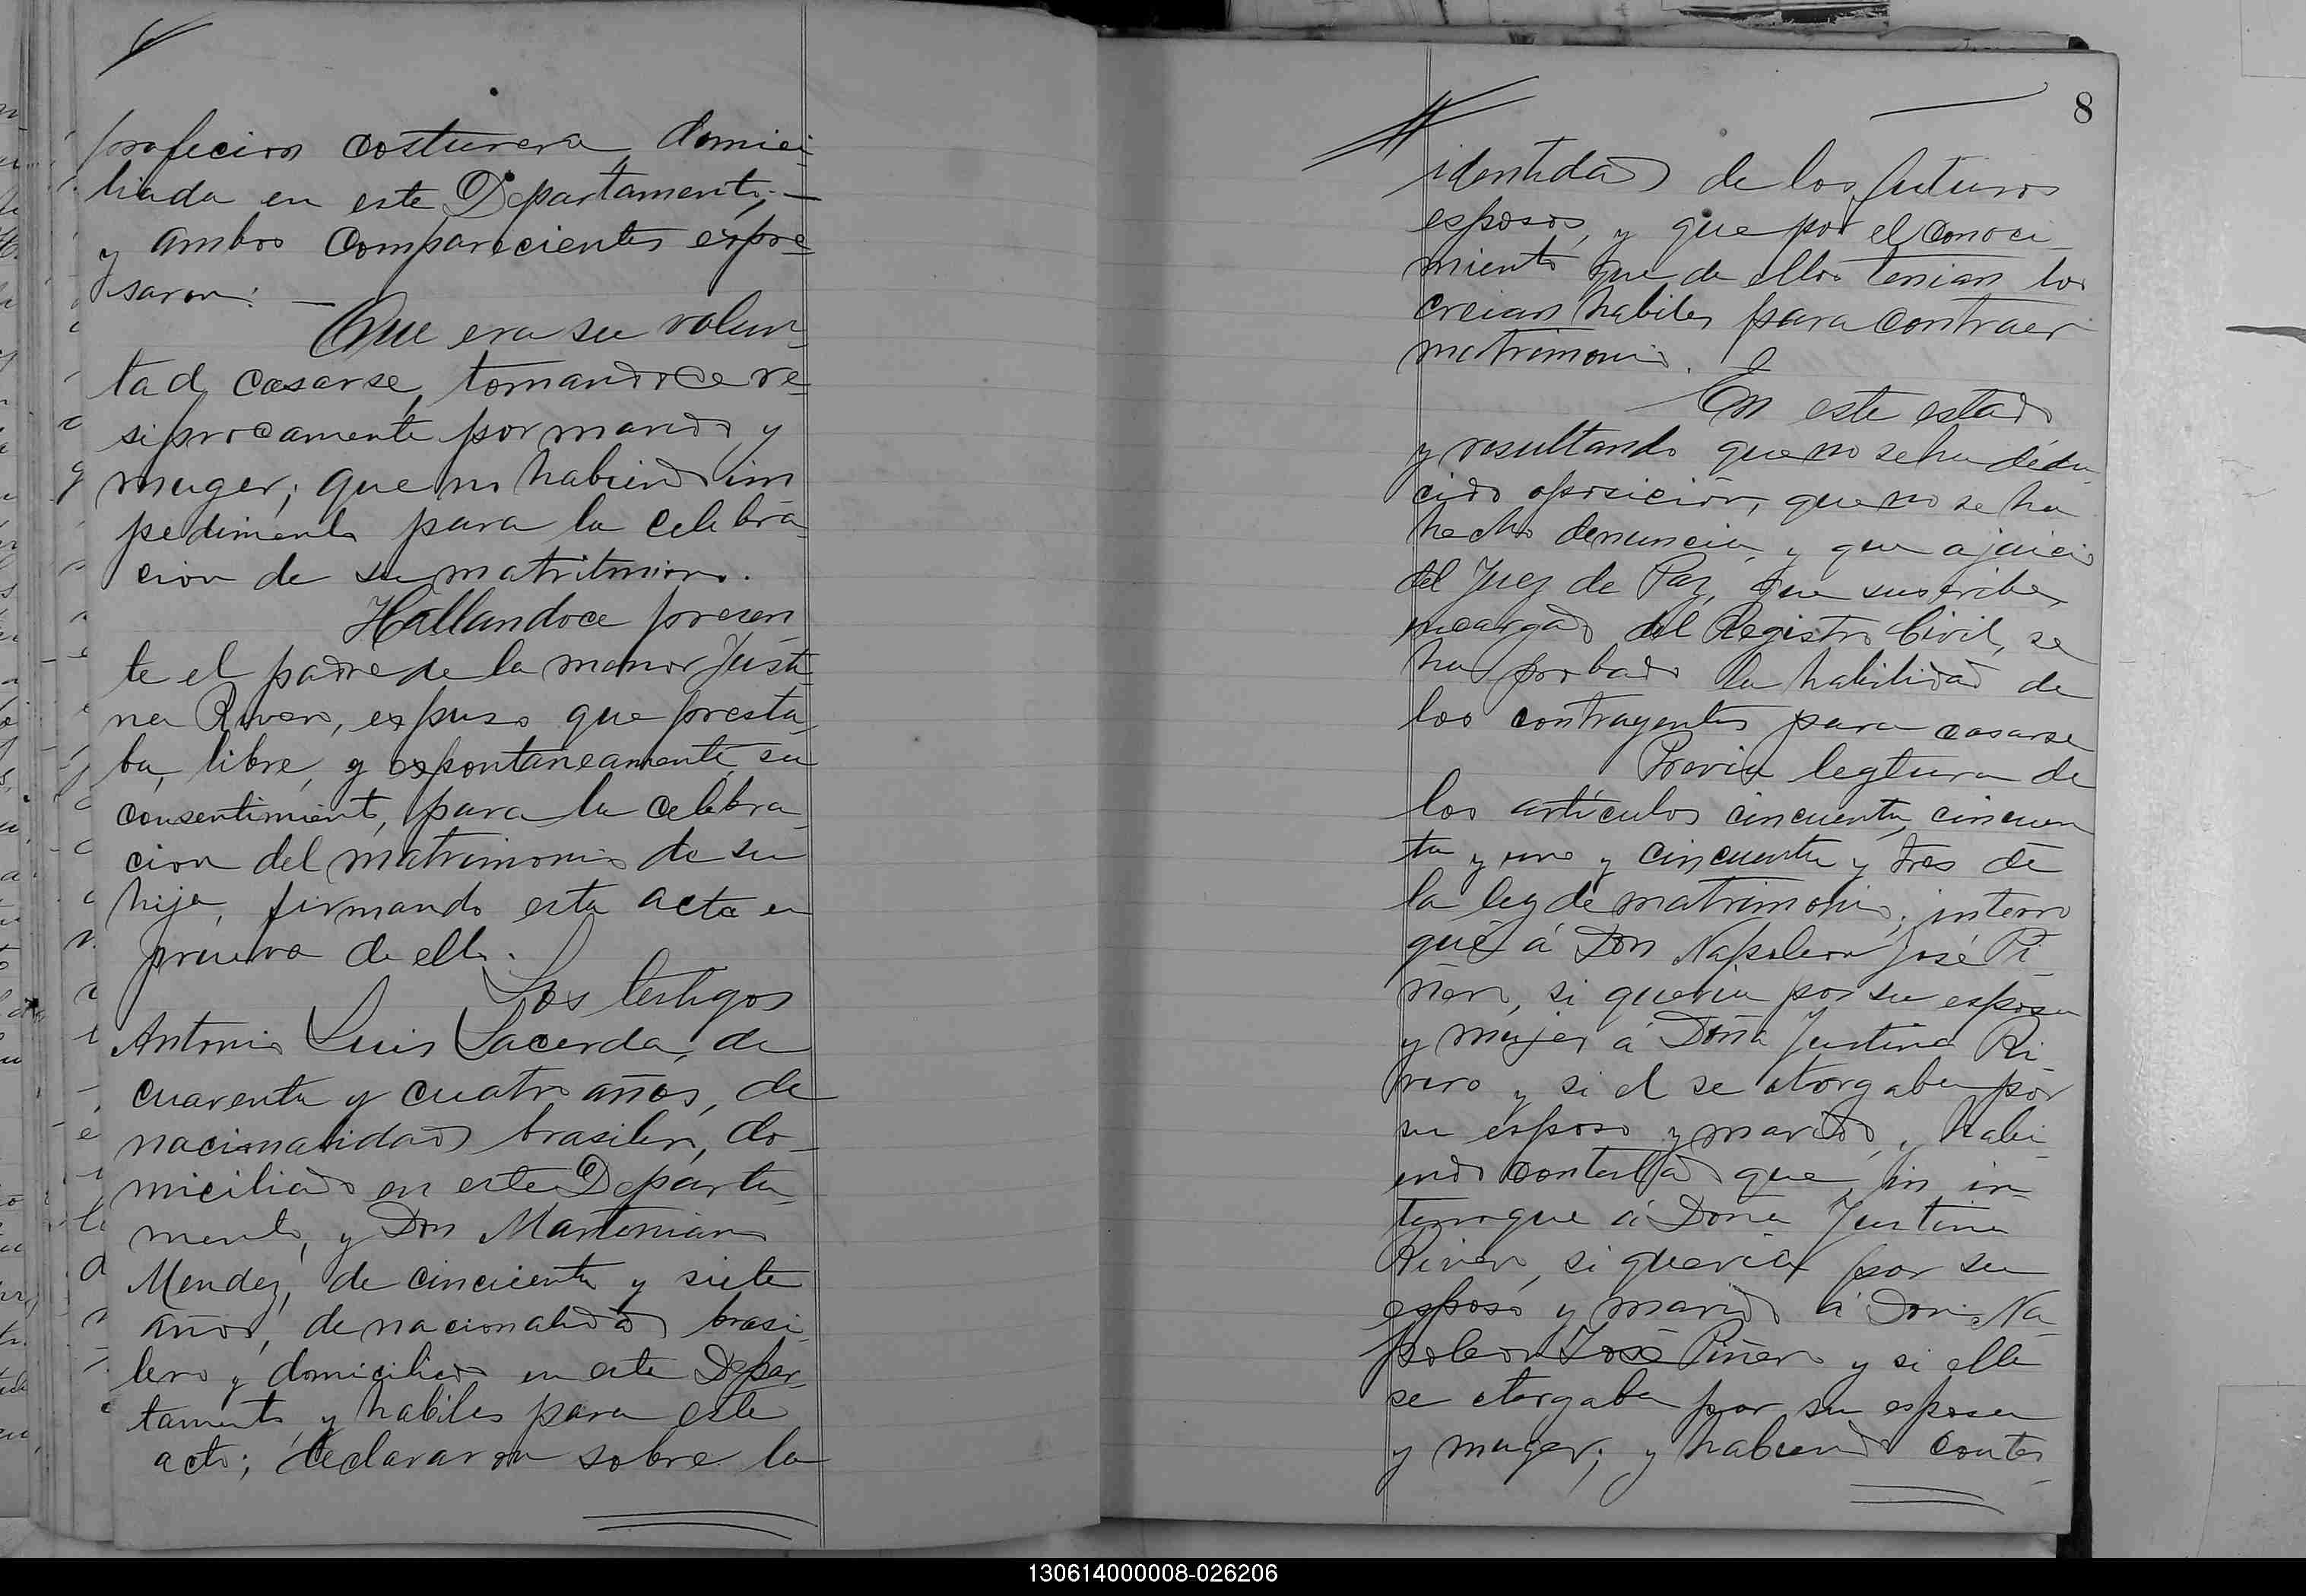 profecion costurera, domici-
liada en este Departamento;—
y ambos comparecientes expre-
saron: —
Que era su volun-
tad, casarse, tomandoce re-
siprocamente por marido y
muger; que no habiendo im
pedimento para la celebra-
cion de su matritmion.
Hallandoce presen-
te el padre de la menor Justi-
na Rivero, expuso que presta-
ba, libre, y expontaneamente, su
consentimiento, para la celebra-
cion del matrimonio de su
hija, firmando esta acta en
prueva de ello.
Los testigos
Antonio Luis Lacerda, de
cuarenta y cuatro años, de
nacionalidad brasilero, do-
miciliado en este Departa-
mento, y Don Martoniano
Mendez, de cincuenta y siete
años, de nacionalidad brasi-
lero y domiciliado en este Depar-
tamento, y habiles para este
acto; declararon sobre la
8
identidad de los futuros
esposos, y que por el conoci-
miento que de ellos tenian los
creian habiles para contraer
matrimonio.
En este estado
y resultando que no se ha dedu-
cido oposición, que no se ha
hecho denuncia, y que a juicio
del Juez de Paz, que suscribe,
encargado del Registro Civil, se
ha probado la habilidad de
los contrayentes para casarse
Previa legtura de
los artículos cincuenta, cincuen
ta y uno y cincuenta y tres de
la ley de matrimonio, interro
gué á Don Napoleon José Pi-
ñero, si queria por su esposa
y mujer á Doña Justina Ri-
vero y si el se otorgaba por
su esposo y marido, y habi-
endo contestado que in in-
terrogue á Doña Justina
Rivero, si queria por su
esposo y marido á Don Na-
poleon José Piñero y si ella
se otorgaba por su esposa
y muger; y habiendo contes-
130614000008-026206